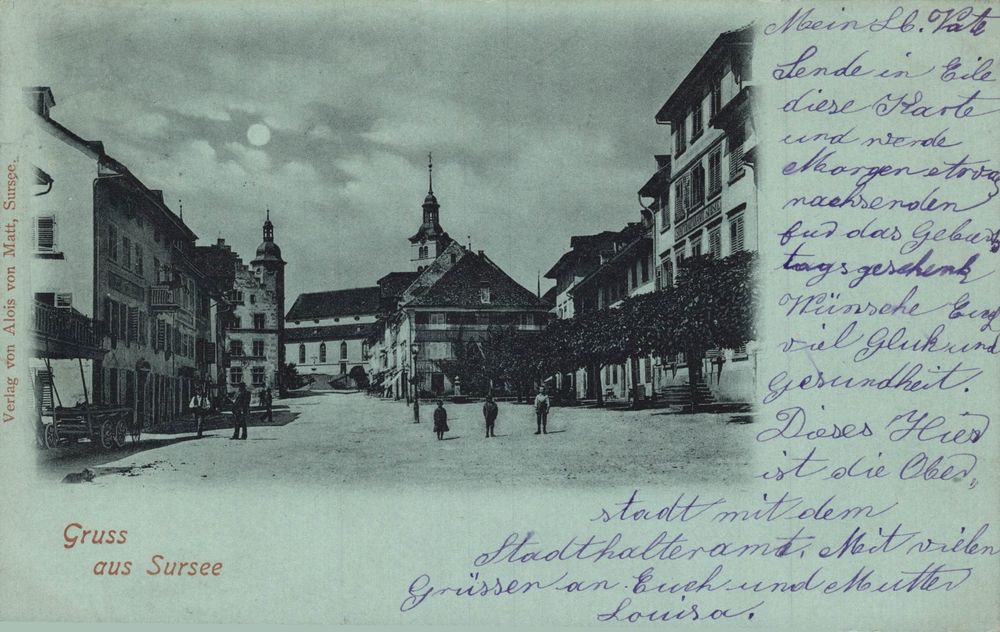 Mein Lb. Vate
Sende in Eile
diese Karte
und werde
Morgen etwas
nachsenden
für das Geburts
tagsgeschenk
Wünsche Eug
viel Gluk und
Gesundheit.
Dieses Hier
ist die Ober„
stadt mit dem
Stadthalteramt. Mit vielen
Grüssen an Euch und Mutter
Louisa.
Gruss
aus Sursee
Verlag von Alois von Matt, Sursee.